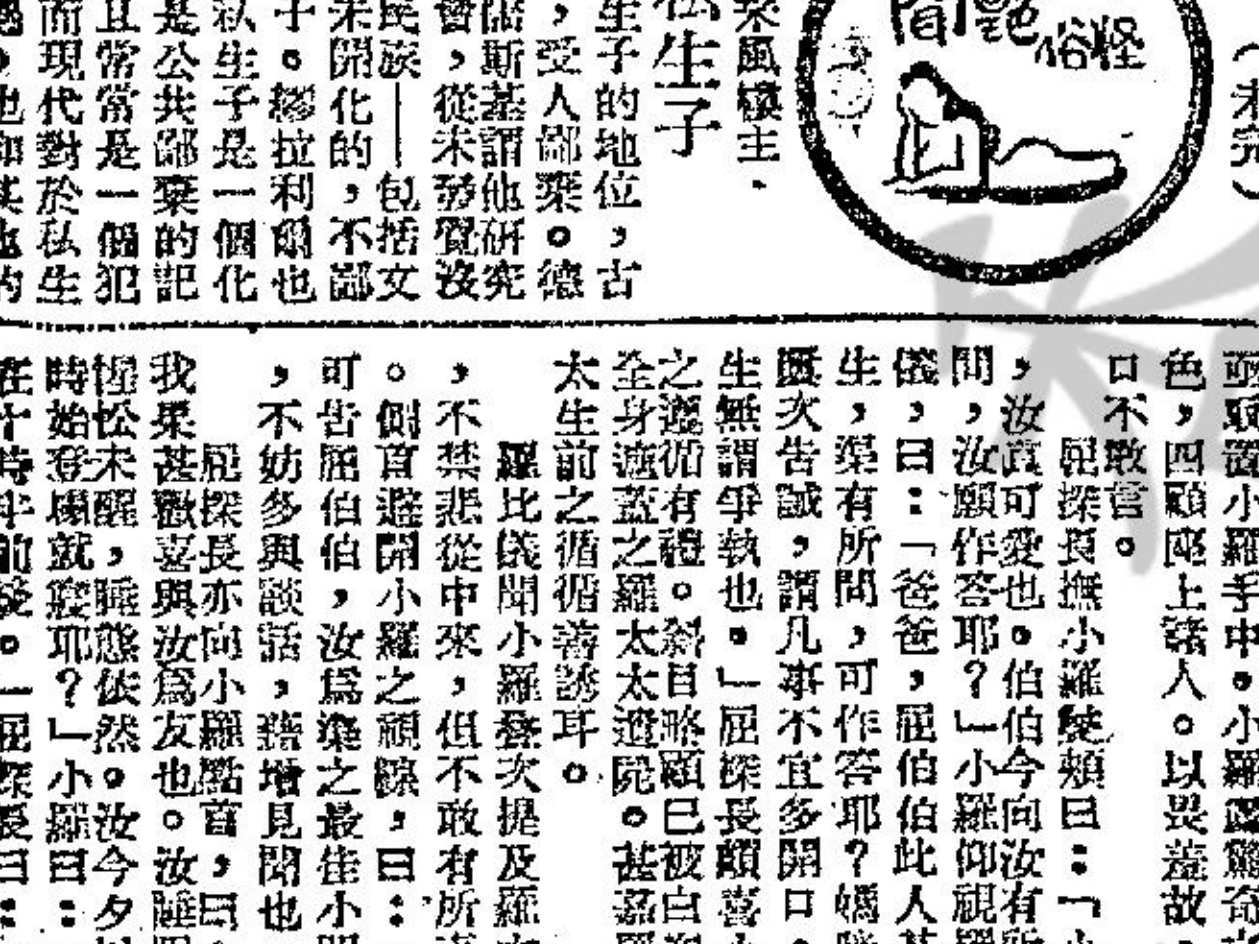 （未完）
怪俗艷聞
采風樓主
私生子
生子的地位，古
，受人鄙棄。德
儒斯基謂他研究
會，從未發覺沒
民族——包括文
未開化的，不鄙
子。繆拉利爾也
私生子是一個化
是公共鄙棄的記
且常常是一個犯
而現代對於私生
也和其他的
頭置小羅手中。小羅露驚奇
色，四顧座上諸人。以畏羞故
口不敢言。
屈探長撫小羅雙頰曰：「小
，汝真可愛也。伯伯今向汝有所
問，汝願作答耶？」小羅仰視羅
儀，曰：「爸爸，屈伯伯此人甚
生，渠有所問，可作答耶？媽
屢次告誡，謂凡事不宜多開口，
生無謂爭執也。」屈探長頗喜小
之遵循有禮。斜目略顧已被白
全身遮蓋之羅太太遺屍。甚
太生前之循循善誘耳。
羅比儀聞小羅疊次提及羅
，不禁悲從中來，但不敢有所
。側首避開小羅之視線，曰：
可告屈伯伯，汝爲渠之最佳小
，不妨多與談話，藉增見聞也
屈探長亦向小羅點首，曰
我果甚歡喜與汝爲友也。汝睡
惺忪未醒，睡態依然。汝今夕
時始登榻就寢耶？」小羅曰：
在十時半前後。」屈探長曰：